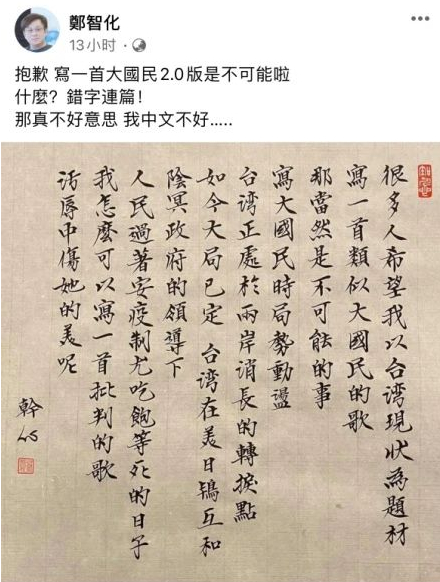 鄭智化
13小时
抱歉 寫一首大國民2.0版是不可能啦
什麼?錯字連篇!
那真不好意思 我中文不好.....
很多人希望我以台湾現状為題材
寫一首類似大國民的歌
那當然是不可能的事
寫大國民時局勢動盪
台湾正處於兩岸消長的轉捩點
如今大局已定 台湾在美日鴇互和
陰冥政府的領導下
人民過著安疫制尤吃飽等死的日子
我怎麼可以寫一首批判的歌
污辱中傷她的美呢
幹